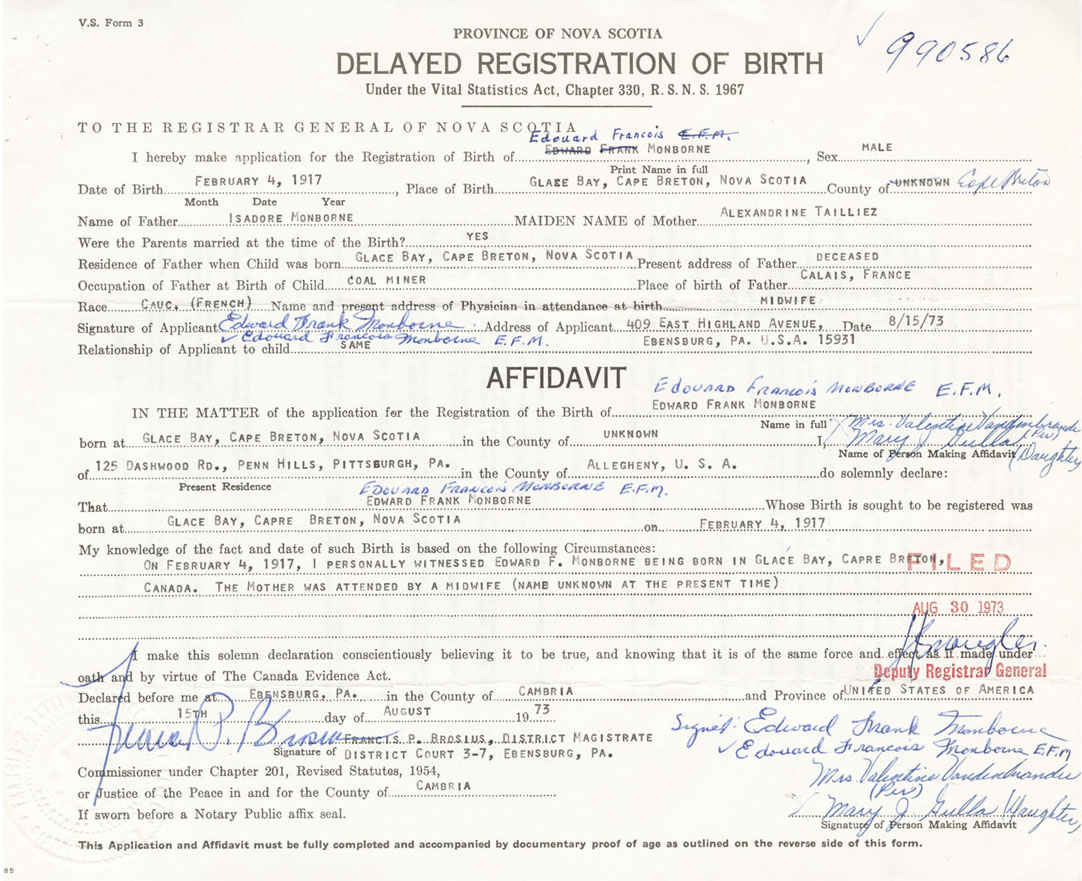 V.S. Form 3
PROVINCE OF NOVA SCOTIA
990586
DELAYED REGISTRATION OF BIRTH
Under the Vital Statistics Act, Chapter 330, R. S. N. S. 1967
TO THE REGISTRAR GENERAL OF NOVA SCOTIA
Edouard Francois E.F.M.
I hereby make application for the Registration of Birth of EDWARD FRANK MONBORNE, Sex MALE
Print Name in full
Date of Birth FEBRUARY 4, 1917, Place of Birth GLACE BAY, CAPE BRETON, NOVA SCOTIA County of UNKNOWN Cape Breton
Month Date Year
Name of Father ISADORE MONBORNE MAIDEN NAME of Mother ALEXANDRINE TAILLIEZ
Were the Parents married at the time of the Birth? YES
Residence of Father when Child was born GLACE BAY, CAPE BRETON, NOVA SCOTIA Present address of Father DECEASED
Occupation of Father at Birth of Child COAL MINER Place of birth of Father CALAIS, FRANCE
Race CAUC. (FRENCH) Name and present address of Physician in attendance at birth MIDWIFE
Signature of Applicant Edward Frank Monborne Address of Applicant 409 EAST HIGHLAND AVENUE, Date 8/15/73
Edouard Francois Monborne E.F.M.
Relationship of Applicant to child SAME EBENSBURG, PA. U.S.A. 15931
AFFIDAVIT
EDOUARD FRANCOIS MONBORNE E.F.M.
IN THE MATTER of the application for the Registration of the Birth of EDWARD FRANK MONBORNE
Name in full Mrs. Valentine Vandenbrande (Per)
born at GLACE BAY, CAPE BRETON, NOVA SCOTIA in the County of UNKNOWN I, Mary J Gulla (Daughter)
Name of Person Making Affidavit
of 125 DASHWOOD RD., PENN HILLS, PITTSBURGH, PA. in the County of ALLEGHENY, U. S. A. do solemnly declare:
Present Residence
EDOUARD FRANCOIS MONBORNE E.F.M.
That EDWARD FRANK MONBORNE Whose Birth is sought to be registered was
born at GLACE BAY, CAPRE BRETON, NOVA SCOTIA on FEBRUARY 4, 1917
My knowledge of the fact and date of such Birth is based on the following Circumstances:
ON FEBRUARY 4, 1917, I PERSONALLY WITNESSED EDWARD F. MONBORNE BEING BORN IN GLACE BAY, CAPRE BRETON,
FILED
CANADA. THE MOTHER WAS ATTENDED BY A MIDWIFE (NAME UNKNOWN AT THE PRESENT TIME)
AUG 30 1973
I make this solemn declaration conscientiously believing it to be true, and knowing that it is of the same force and effect as it made under
oath and by virtue of The Canada Evidence Act.
Deputy Registrar General
Declared before me at EBENSBURG, PA. in the County of CAMBRIA and Province of UNITED STATES OF AMERICA
this 15TH day of AUGUST 19 73
Signed: Edward Frank Monborne
Francis P. Brosius FRANCIS P. BROSIUS, DISTRICT MAGISTRATE
Edouard Francois Monborne E.F.M
Signature of DISTRICT COURT 3-7, EBENSBURG, PA.
Commissioner under Chapter 201, Revised Statutes, 1954,
Mrs. Valentine Vandenbrande
(Per)
or Justice of the Peace in and for the County of CAMBRIA
Mary J Gulla (Daughter)
If sworn before a Notary Public affix seal.
Signature of Person Making Affidavit
This Application and Affidavit must be fully completed and accompanied by documentary proof of age as outlined on the reverse side of this form.
85